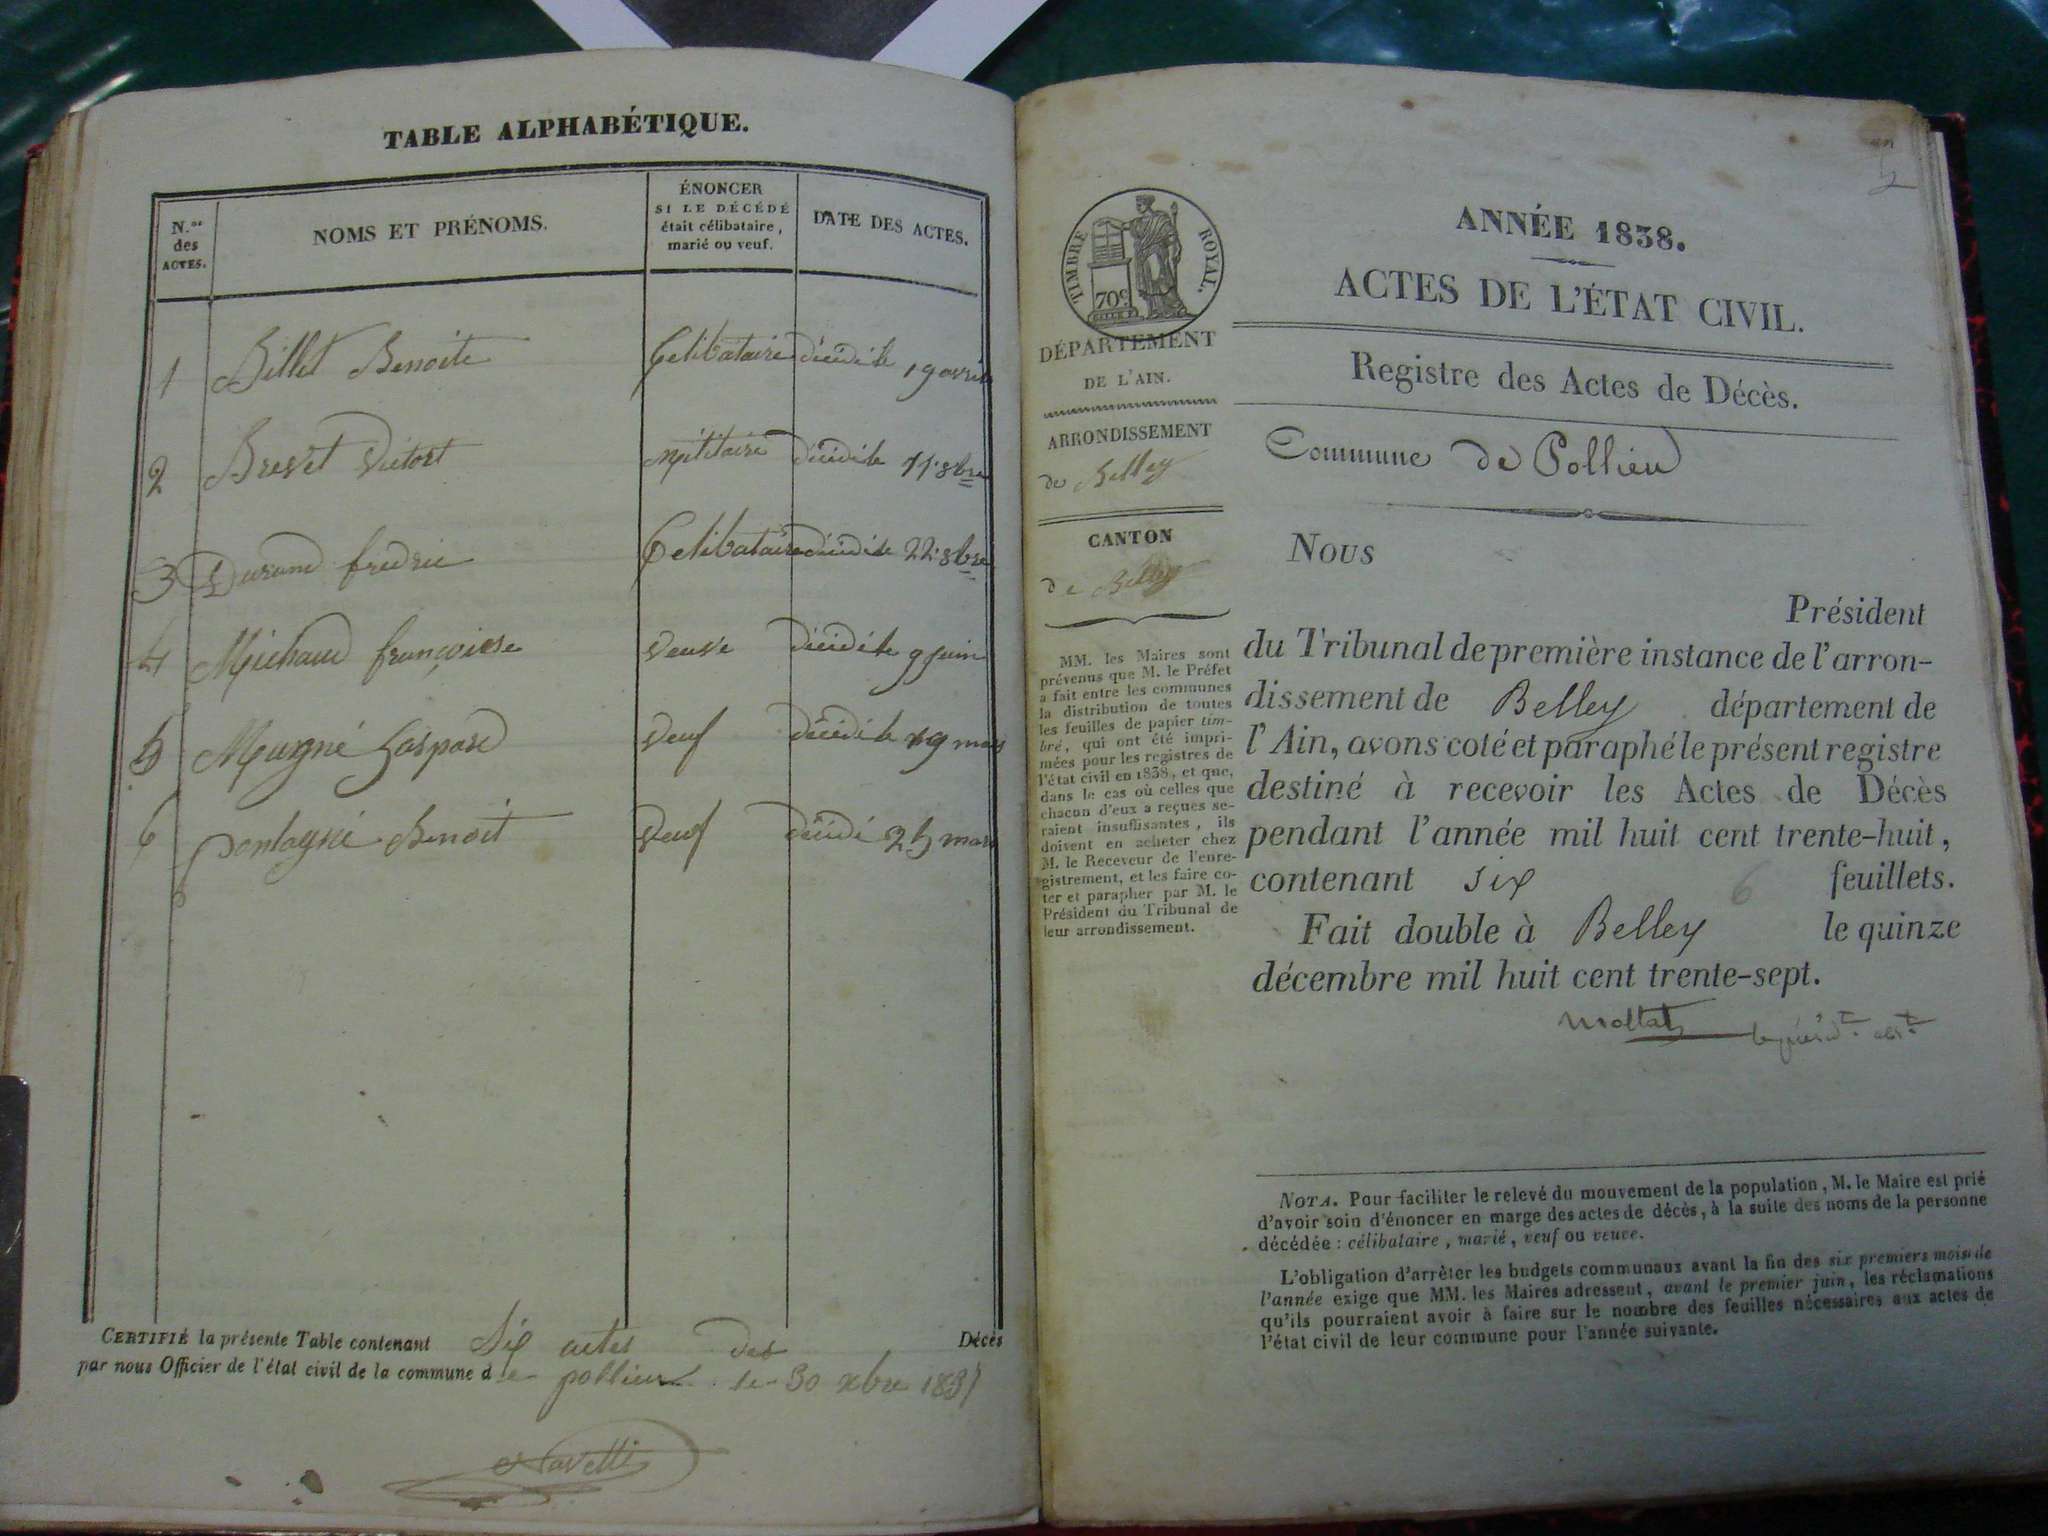 TABLE ALPHABÉTIQUE.
N.os des ACTES.
NOMS ET PRÉNOMS.
ÉNONCER
SI LE DÉCÉDÉ
était célibataire,
marié ou veuf.
DATE DES ACTES.
1 Billet Benoite Celibataire décédé le 19 avril
2 Brevet Victort militaire décédé le 11 8bre
3 Durand fredric Celibataire décédé le 22 8bre
4 Michaud françoise veuve décédé le 9 juin
5 Gaspard veuf décédé le 19 mars
6 Benoit veuf décédé 25 mars
CERTIFIÉ la présente Table contenant Six actes des Décès
par nous Officier de l'état civil de la commune de pollieu le 30 xbre 1837
TIMBRE ROYAL.
70c
DÉPARTEMENT
DE L'AIN.
ARRONDISSEMENT
de Belley
CANTON
de Belley
MM. les Maires sont
prévenus que M. le Préfet
a fait entre les communes
la distribution de toutes
les feuilles de papier tim-
bré, qui ont été impri-
mées pour les registres de
l'état civil en 1838, et que,
dans le cas où celles que
chacun d'eux a reçues se-
raient insuffisantes, ils
doivent en acheter chez
M. le Receveur de l'enre-
gistrement, et les faire co-
ter et parapher par M. le
Président du Tribunal de
leur arrondissement.
ANNÉE 1838.
ACTES DE L'ÉTAT CIVIL.
Registre des Actes de Décès.
Commune de Pollieu
Nous
Président
du Tribunal de première instance de l'arron-
dissement de Belley département de
l'Ain, avons coté et paraphé le présent registre
destiné à recevoir les Actes de Décès
pendant l'année mil huit cent trente-huit,
contenant six 6 feuillets.
Fait double à Belley le quinze
décembre mil huit cent trente-sept.
NOTA. Pour faciliter le relevé du mouvement de la population, M. le Maire est prié
d'avoir soin d'énoncer en marge des actes de décès, à la suite des noms de la personne
décédée : célibataire, marié, veuf ou veuve.
L'obligation d'arrêter les budgets communaux avant la fin des six premiers mois de
l'année exige que MM. les Maires adressent, avant le premier juin, les réclamations
qu'ils pourraient avoir à faire sur le nombre des feuilles nécessaires aux actes de
l'état civil de leur commune pour l'année suivante.